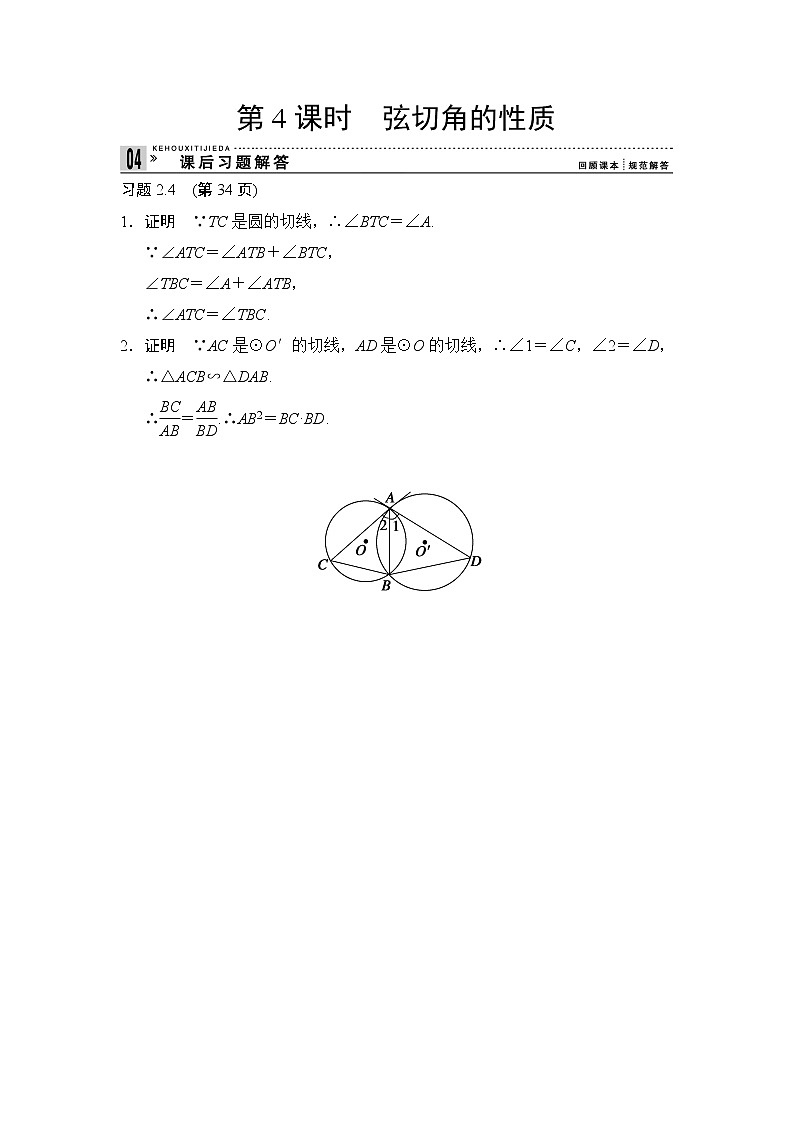 第4课时　弦切角的性质
KEHOUXITIJIEDA
04 课后习题解答 回顾课本 规范解答
习题2.4　(第34页)
1．证明　∵TC是圆的切线，∴∠BTC＝∠A.
∵∠ATC＝∠ATB＋∠BTC，
∠TBC＝∠A＋∠ATB，
∴∠ATC＝∠TBC.
2．证明　∵AC是⊙O′的切线，AD是⊙O的切线，∴∠1＝∠C，∠2＝∠D，
∴△ACB∽△DAB.
∴BC/AB＝AB/BD.∴AB²＝BC·BD.
A
2 1
O O′
C D
B